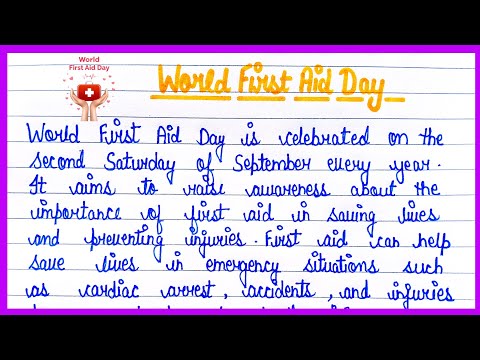 World
First Aid Day
World First Aid Day
World First Aid Day is celebrated on the
second Saturday of September every year.
It aims to raise awareness about the
importance of first aid in saving lives
and preventing injuries. First aid can help
save lives in emergency situations such
as cardiac arrest, accidents, and injuries